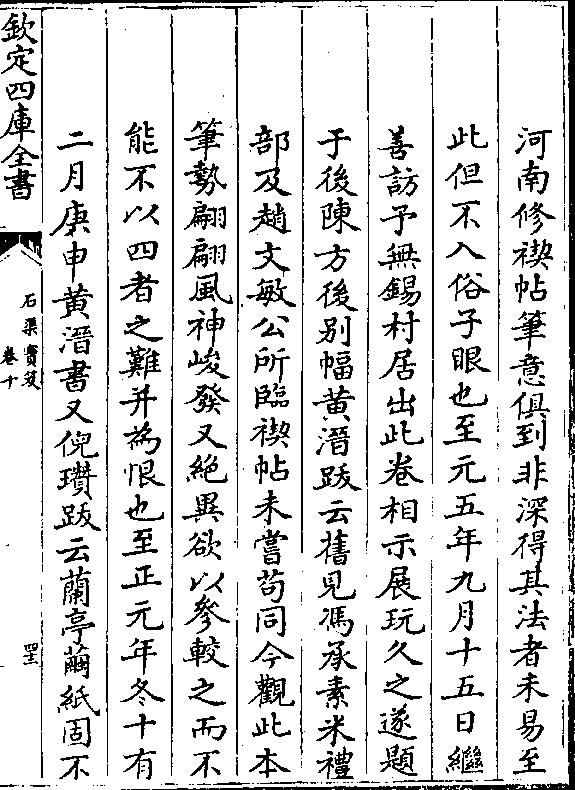 河南修禊帖筆意俱到非深得其法者未易至
此但不入俗子眼也至元五年九月十五日繼
善訪予無錫村居出此卷相示展玩久之遂題
于後陳方後别幅黄溍跋云舊見馮承素米禮
部及趙文敏公所臨禊帖未嘗苟同今觀此本
筆勢翩翩風神峻發又絶異欲以參較之而不
能不以四者之難并為恨也至正元年冬十有
二月庚申黄溍書又倪瓚跋云蘭亭繭紙固不
欽定四庫全書
石渠寳笈
卷十